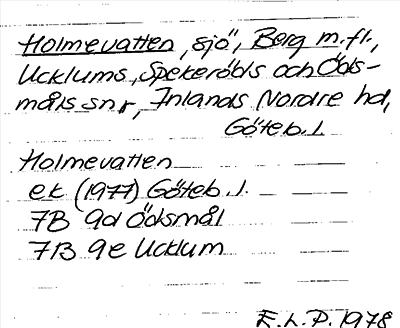 Holmevatten, sjö, Berg m.fl.,
Ucklums, Spekeröds och Öds-
måls snr, Inlands Nordre hd,
Göteb. l.
Holmevatten
ek (1977) Göteb. l.
7B 9d Ödsmål
7B 9e Ucklum
E.L.P. 1978